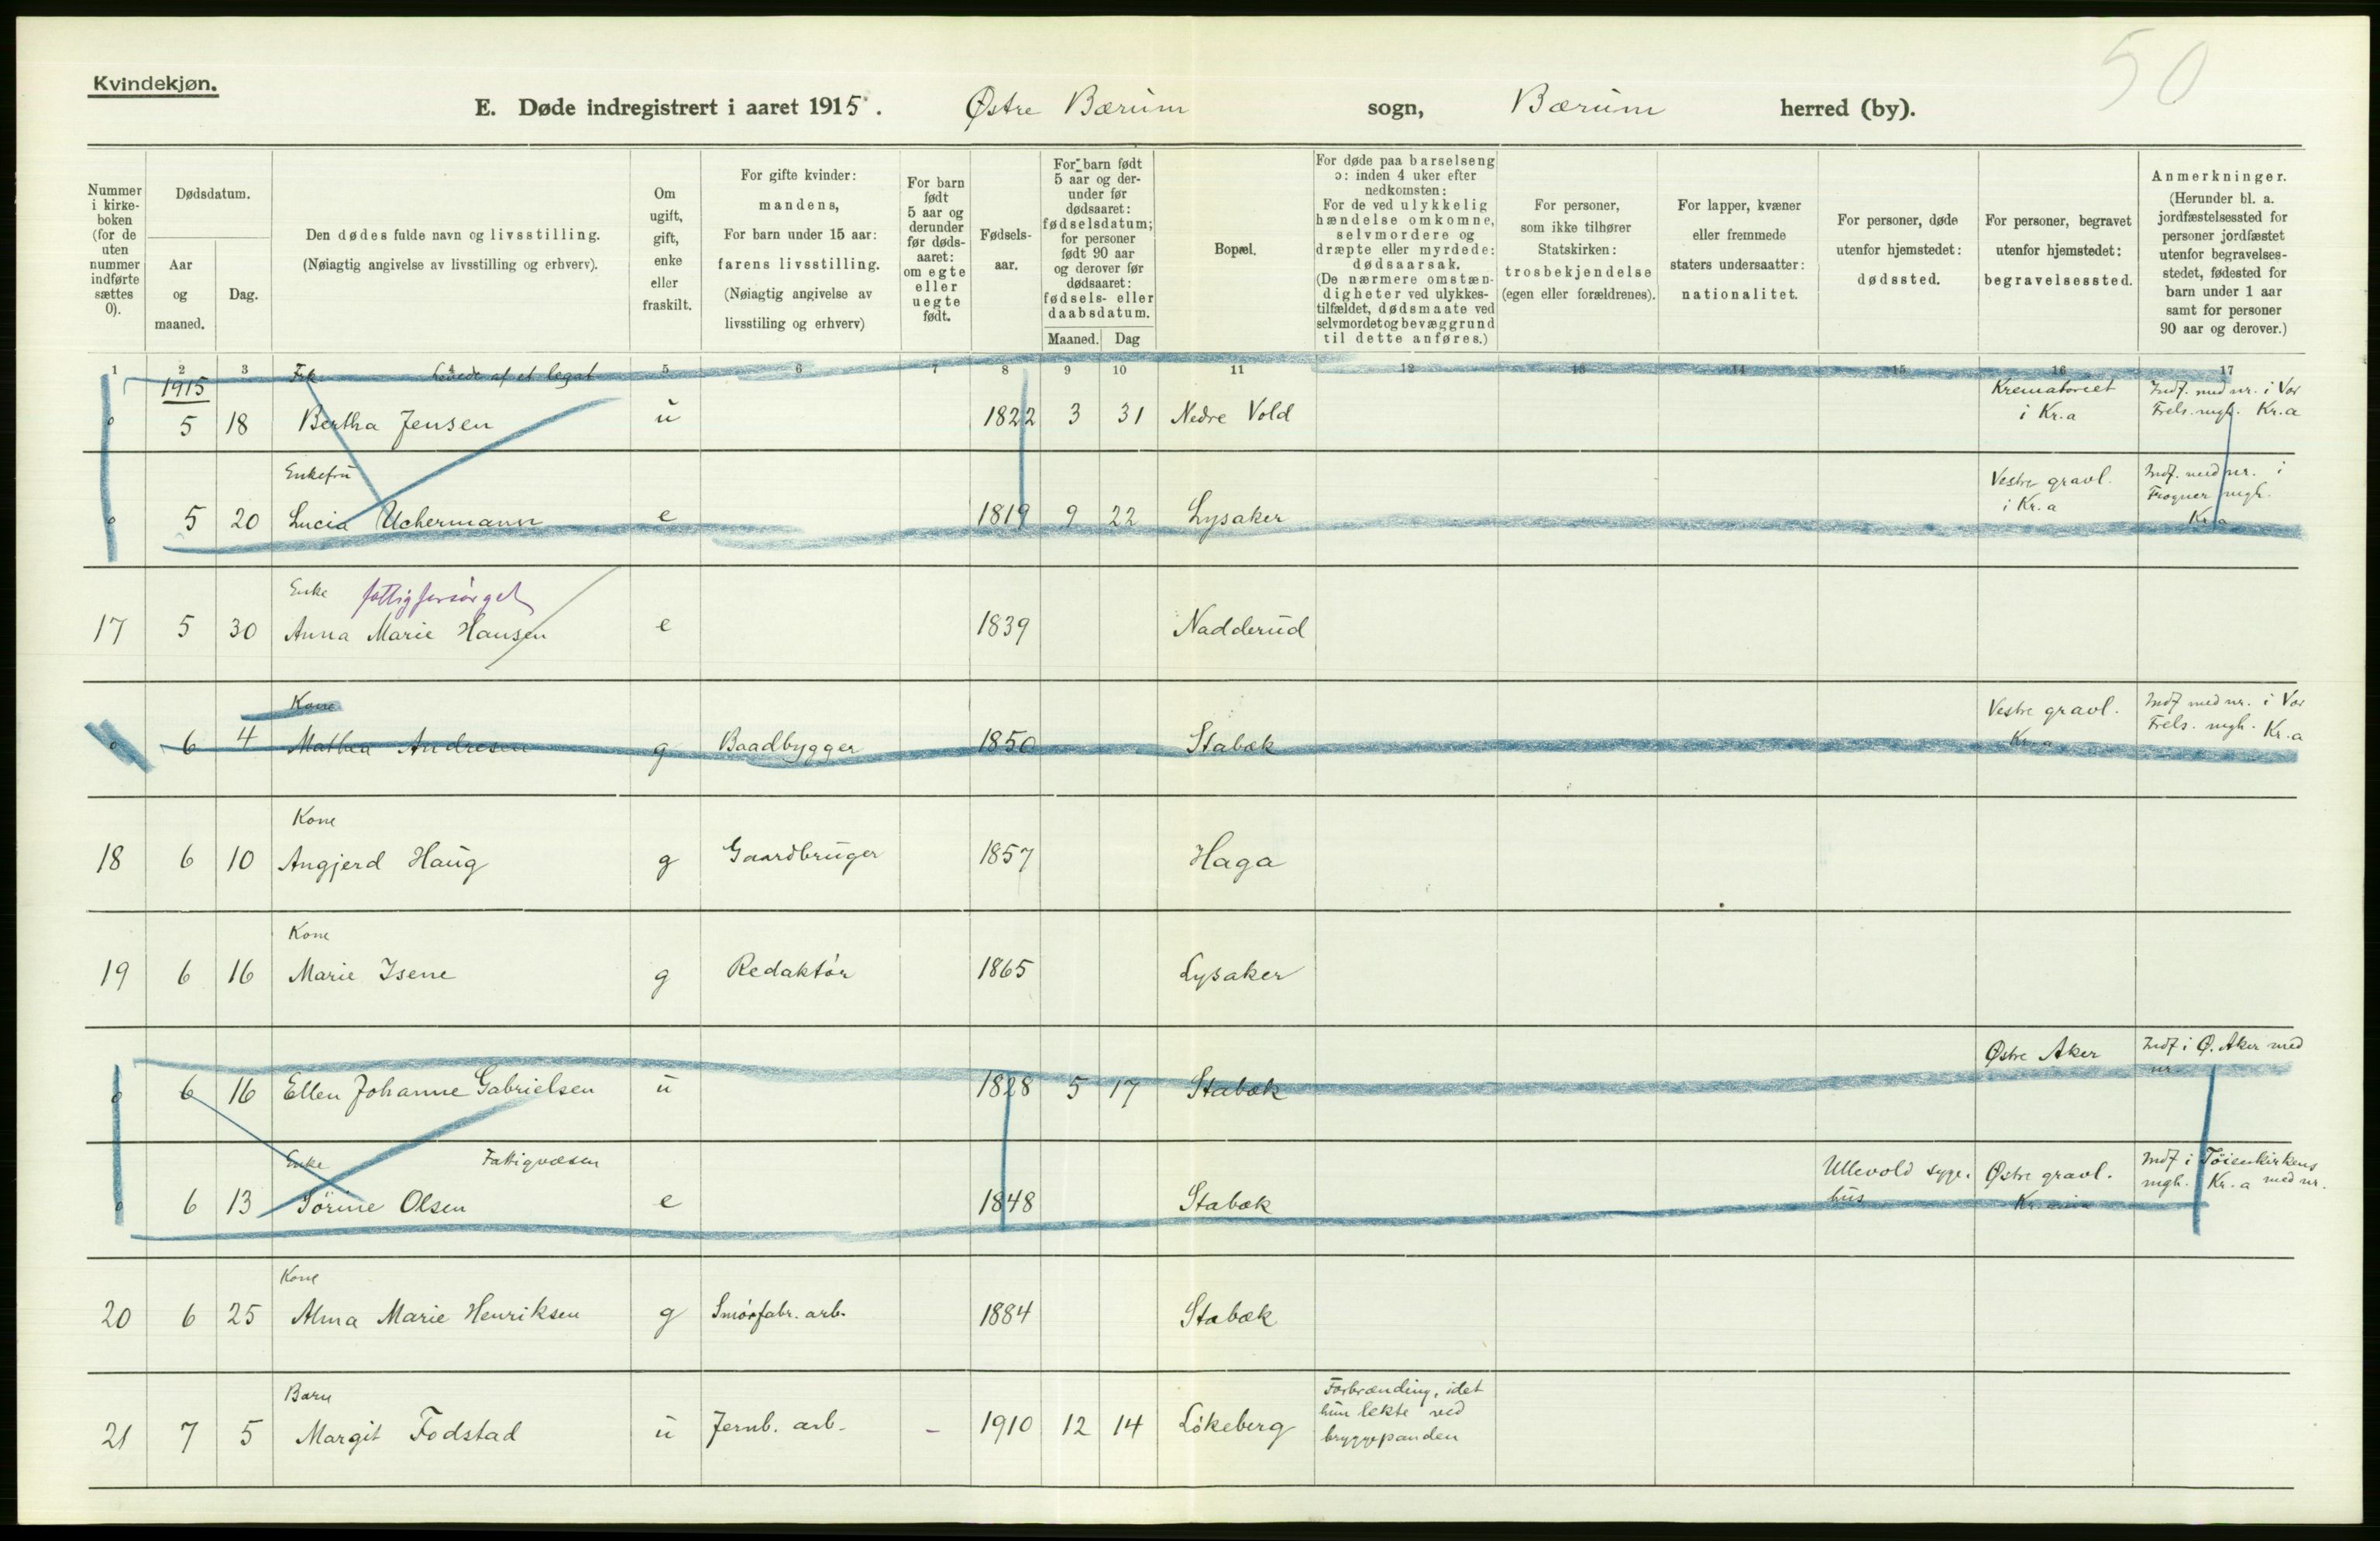 50
Kvindekjøn.
E. Døde indregistrert i aaret 1915. Østre Bærum sogn, Bærum herred (by).
Nummer i kirke-boken (for de uten nummer indførte sættes 0).
Dødsdatum.
Aar og maaned.
Dag.
Den dødes fulde navn og livsstilling.
(Nøiagtig angivelse av livsstilling og erhverv).
Om ugift, gift, enke eller fraskilt.
For gifte kvinder: mandens,
For barn under 15 aar: farens livsstilling.
(Nøiagtig angivelse av livsstiling og erhverv)
For barn født 5 aar og derunder før døds-aaret: om egte eller uegte født.
Fødsels-aar.
For barn født 5 aar og der-under før dødsaaret: fødselsdatum; for personer født 90 aar og derover før dødsaaret: fødsels- eller daabsdatum.
Maaned. Dag
Bopæl.
For døde paa barselseng ɔ: inden 4 uker efter nedkomsten:
For de ved ulykkelig hændelse omkomne, selvmordere og dræpte eller myrdede: dødsaarsak.
(De nærmere omstæn-digheter ved ulykkes-tilfældet, dødsmaate ved selvmordet og bevæggrund til dette anføres.)
For personer, som ikke tilhører Statskirken: trosbekjendelse (egen eller forældrenes).
For lapper, kvæner eller fremmede staters undersaatter: nationalitet.
For personer, døde utenfor hjemstedet: dødssted.
For personer, begravet utenfor hjemstedet: begravelsessted.
Anmerkninger.
(Herunder bl. a. jordfæstelsessted for personer jordfæstet utenfor begravelses-stedet, fødested for barn under 1 aar samt for personer 90 aar og derover.)
1 2 3 4 5 6 7 8 9 10 11 12 13 14 15 16 17
1915
Frk Levede af et legat
0 5 18 Bertha Jensen u 1822 3 31 Nedre Vold Krematoriet i Kr.a Indf. med nr. i Vor Frels. mgh. Kr.a
Enkefru
0 5 20 Lucia Uchermann e 1819 9 22 Lysaker Vestre gravl. i Kr.a Indf. med nr. i Frogner mgh. Kr.a
Enke fattigforsørget
17 5 30 Anna Marie Hansen e 1839 Nadderud
Kone
0 6 4 Mathea Andresen g Baadbygger 1850 Stabæk Vestre gravl. Kr.a Indf med nr. i Vor Frels. mgh. Kr.a
Kone
18 6 10 Angjerd Haug g Gaardbruger 1857 Haga
Kone
19 6 16 Marie Isene g Redaktør 1865 Lysaker
0 6 16 Ellen Johanne Gabrielsen u 1828 5 17 Stabæk Østre Aker Indf i Ø. Aker med nr
Enke Fattigvæsen
0 6 13 Sörine Olsen e 1848 Stabæk Ullevold syge.hus Østre gravl. Indf i Töienkirkens mgh. Kr.a med nr.
Kone
20 6 25 Alma Marie Henriksen g Smørfabr. arb. 1884 Stabæk
Barn
21 7 5 Margit Fodstad u Jernb. arb. - 1910 12 14 Løkeberg Forbrænding, idet hun lekte ved bryggepanden